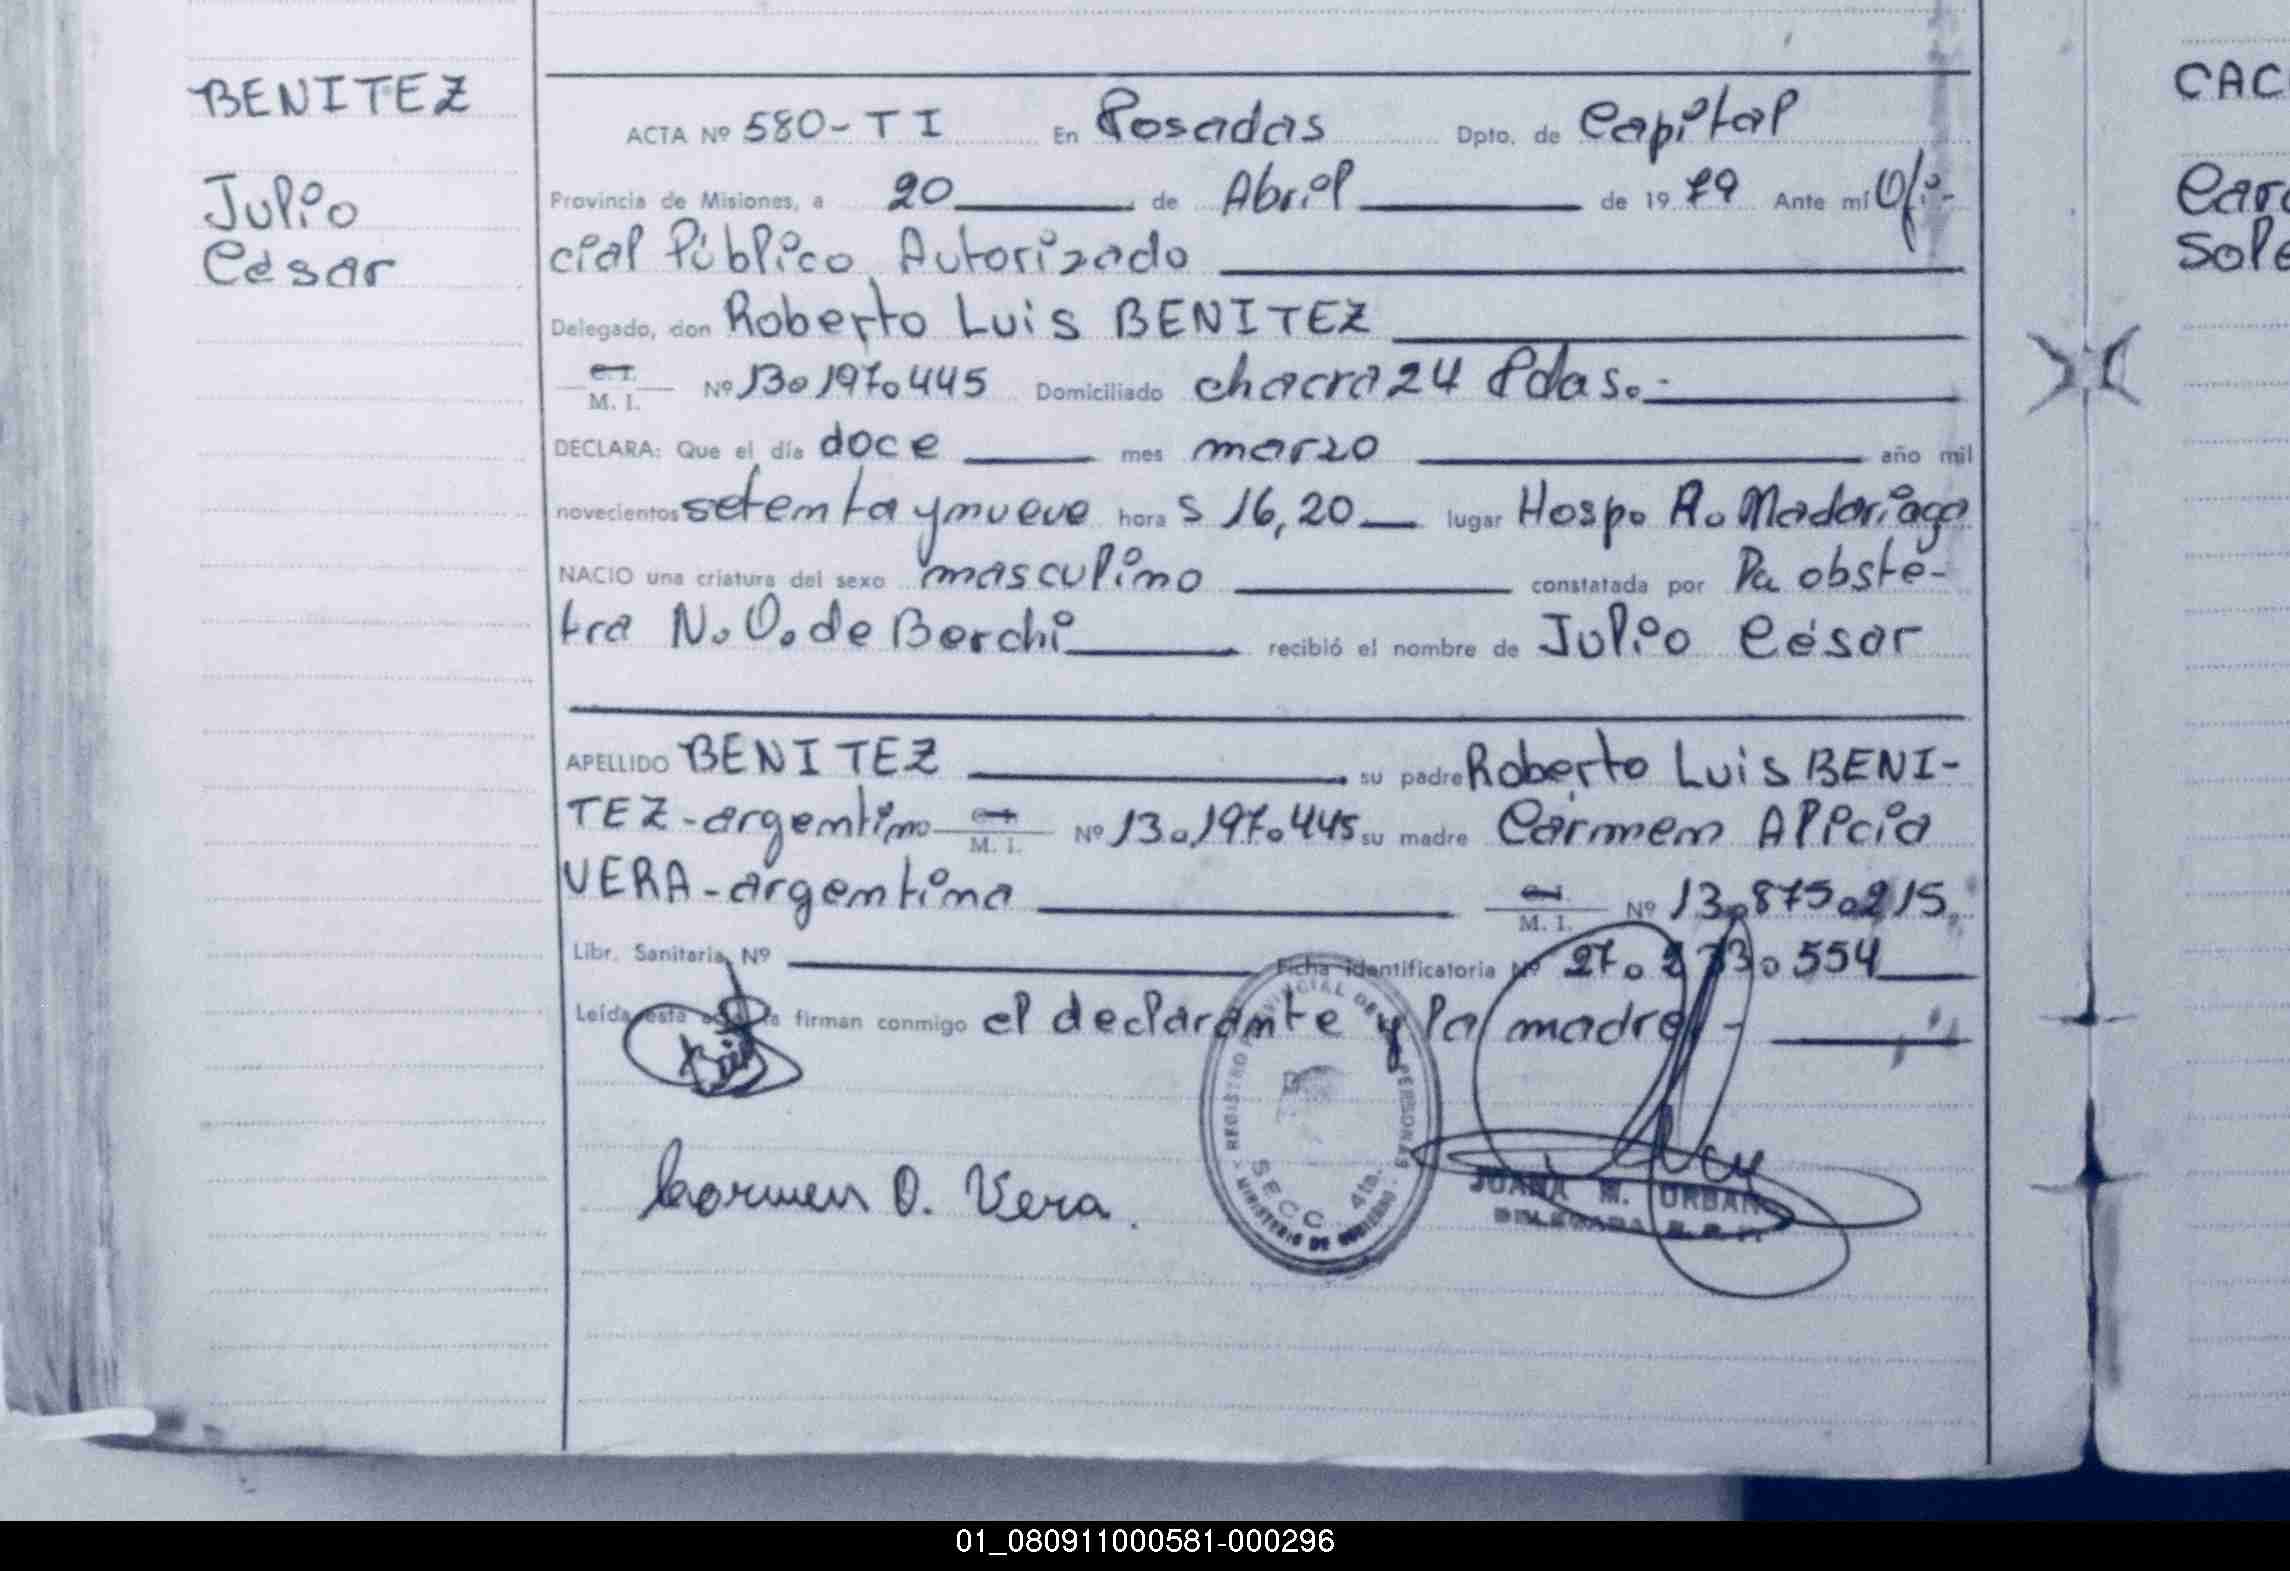 BENITEZ
Julio
César
ACTA Nº 580-TI En Posadas Dpto. de Capital
Provincia de Misiones, a 20 de Abril de 1979 Ante mí Ofi-
cial Público Autorizado
Delegado, don Roberto Luis BENITEZ
C. I.
M. I. Nº 13.197.445 Domiciliado chacra 24 Pdas.-
DECLARA: Que el día doce mes marzo año mil
novecientos setenta y nueve hora s 16,20 lugar Hosp. R. Madariaga
NACIO una criatura del sexo masculino constatada por la obste-
tra N. O. de Borchi recibió el nombre de Julio César
APELLIDO BENITEZ su padre Roberto Luis BENI-
TEZ-argentino M. I. Nº 13.197.445 su madre Carmen Alicia
VERA-argentina M. I. Nº 13.875.215.
Libr. Sanitaria Nº Ficha identificatoria Nº 27. 554
Leída esta acta la firman conmigo el declarante y la madre.-
Carmen A. Vera.
REGISTRO PROVINCIAL DE PERSONAS
SECC. 4ta.
MINISTERIO DE GOBIERNO
JUANA M. URBAN
DELEGADA R. P. P.
CAC
Caro
Sole
01_080911000581-000296